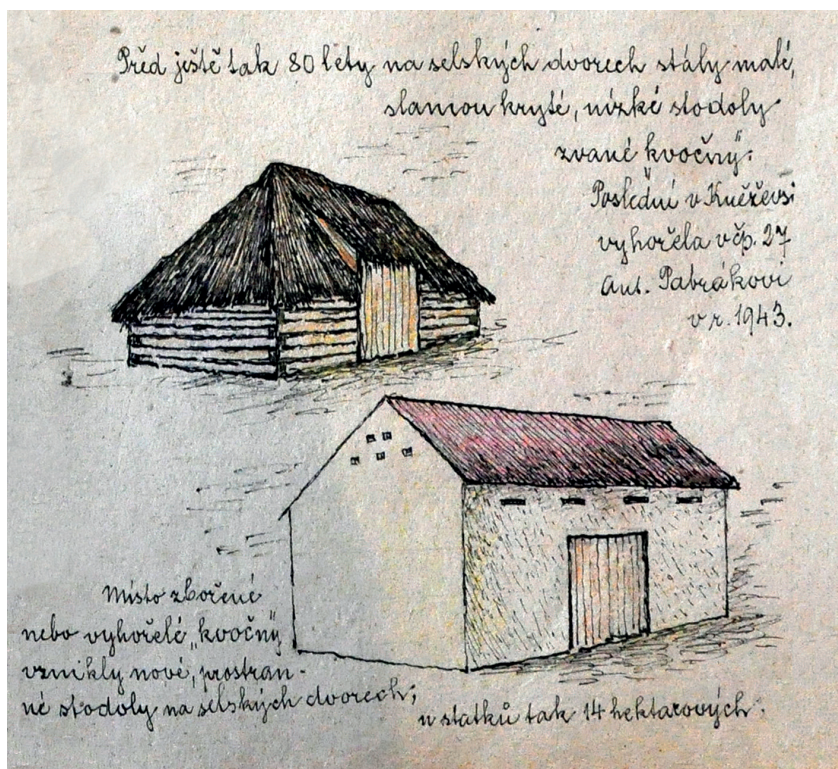 Před ještě tak 80 léty na selských dvorech stály malé,
slamou kryté, nízké stodoly
zvané „kvočny".
Poslední v Kněževsi
vyhořela v čp. 27
Ant. Pabrákovi
v r. 1943.
Místo zbořené
nebo vyhořelé „kvočny"
vznikly nové, prostran-
né stodoly na selských dvorech;
u statků tak 14 hektarových.